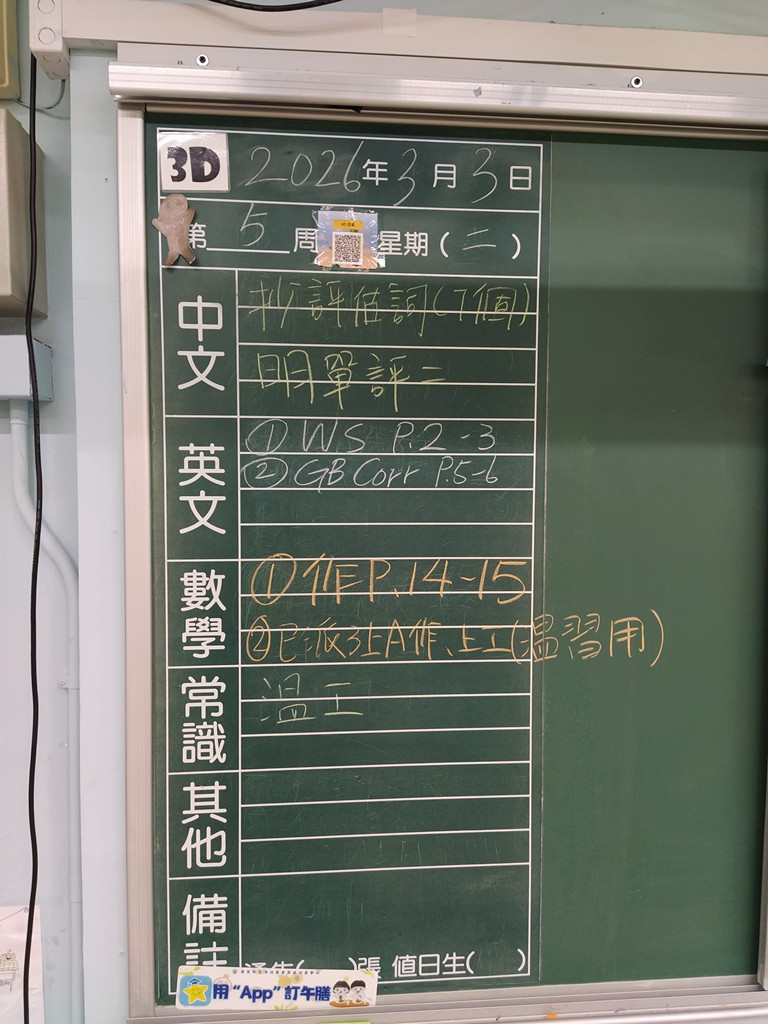 3D 2026年3月3日
第 5 周 星期(二)
中文
抄評估詞(7個)
明單評二
英文
① WS P.2-3
② GB Corr P.5-6
數學
① 作P.14-15
② 已派3上A作、上工(溫習用)
常識
溫工
其他
備註
通告( )張 值日生( )
用“App”訂午膳